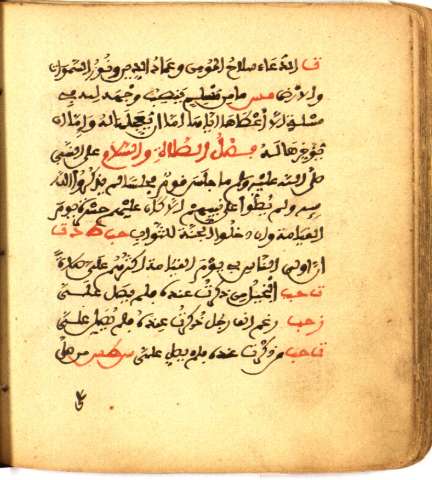 الدعاء صلاح المومن وعماد الدين ونور السموات
والارض مس ما من مسلم ينصب وجهه لله في
مسئلة الا اعطاها اياه اما ان يعجلها له واما ان
يدخرها له فضل الصلاة والسلام على النبي
صلى الله عليه وسلم ما جلس قوم مجلسا لم يذكروا الله
فيه ولم يصلوا على نبيهم الا كان عليهم حسرة يوم
القيامة وان دخلوا الجنة للثواب حب
ان اولى الناس بي يوم القيامة اكثرهم علي صلاة
حب البخيل من ذكرت عنده فلم يصل علي
حب رغم انف رجل ذكرت عنده فلم يصل علي
حب من ذكرت عنده فلم يصل علي من صلى